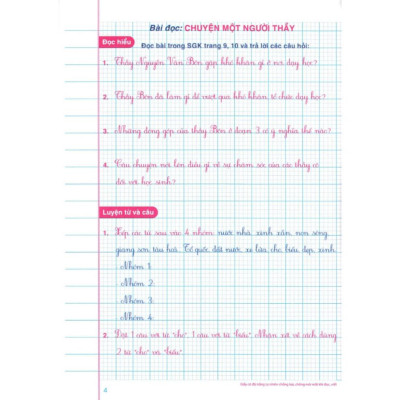 Bài đọc: CHUYỆN MỘT NGƯỜI THẦY
Đọc hiểu
Đọc bài trong SGK trang 9, 10 và trả lời các câu hỏi:
1. Thầy Nguyễn Văn Bôn gặp khó khăn gì ở nơi dạy học?
2. Thầy Bôn đã làm gì để vượt qua khó khăn, tổ chức dạy học?
3. Những đóng góp của thầy Bôn ở đoạn 3 có ý nghĩa thế nào?
4. Câu chuyện nói lên điều gì về sự chăm sóc của các thầy cô
đối với học sinh?
Luyện từ và câu
1. Xếp các từ sau vào 4 nhóm: nước nhà, xinh xắn, non sông,
giang sơn, tàu hoả, Tổ quốc, đất nước, xe lửa, cho, biếu, đẹp, xinh.
Nhóm 1:
Nhóm 2:
Nhóm 3:
Nhóm 4:
2. Đặt 1 câu với từ "cho", 1 câu với từ "biếu". Nhận xét về cách dùng
2 từ "cho" và "biếu".
4